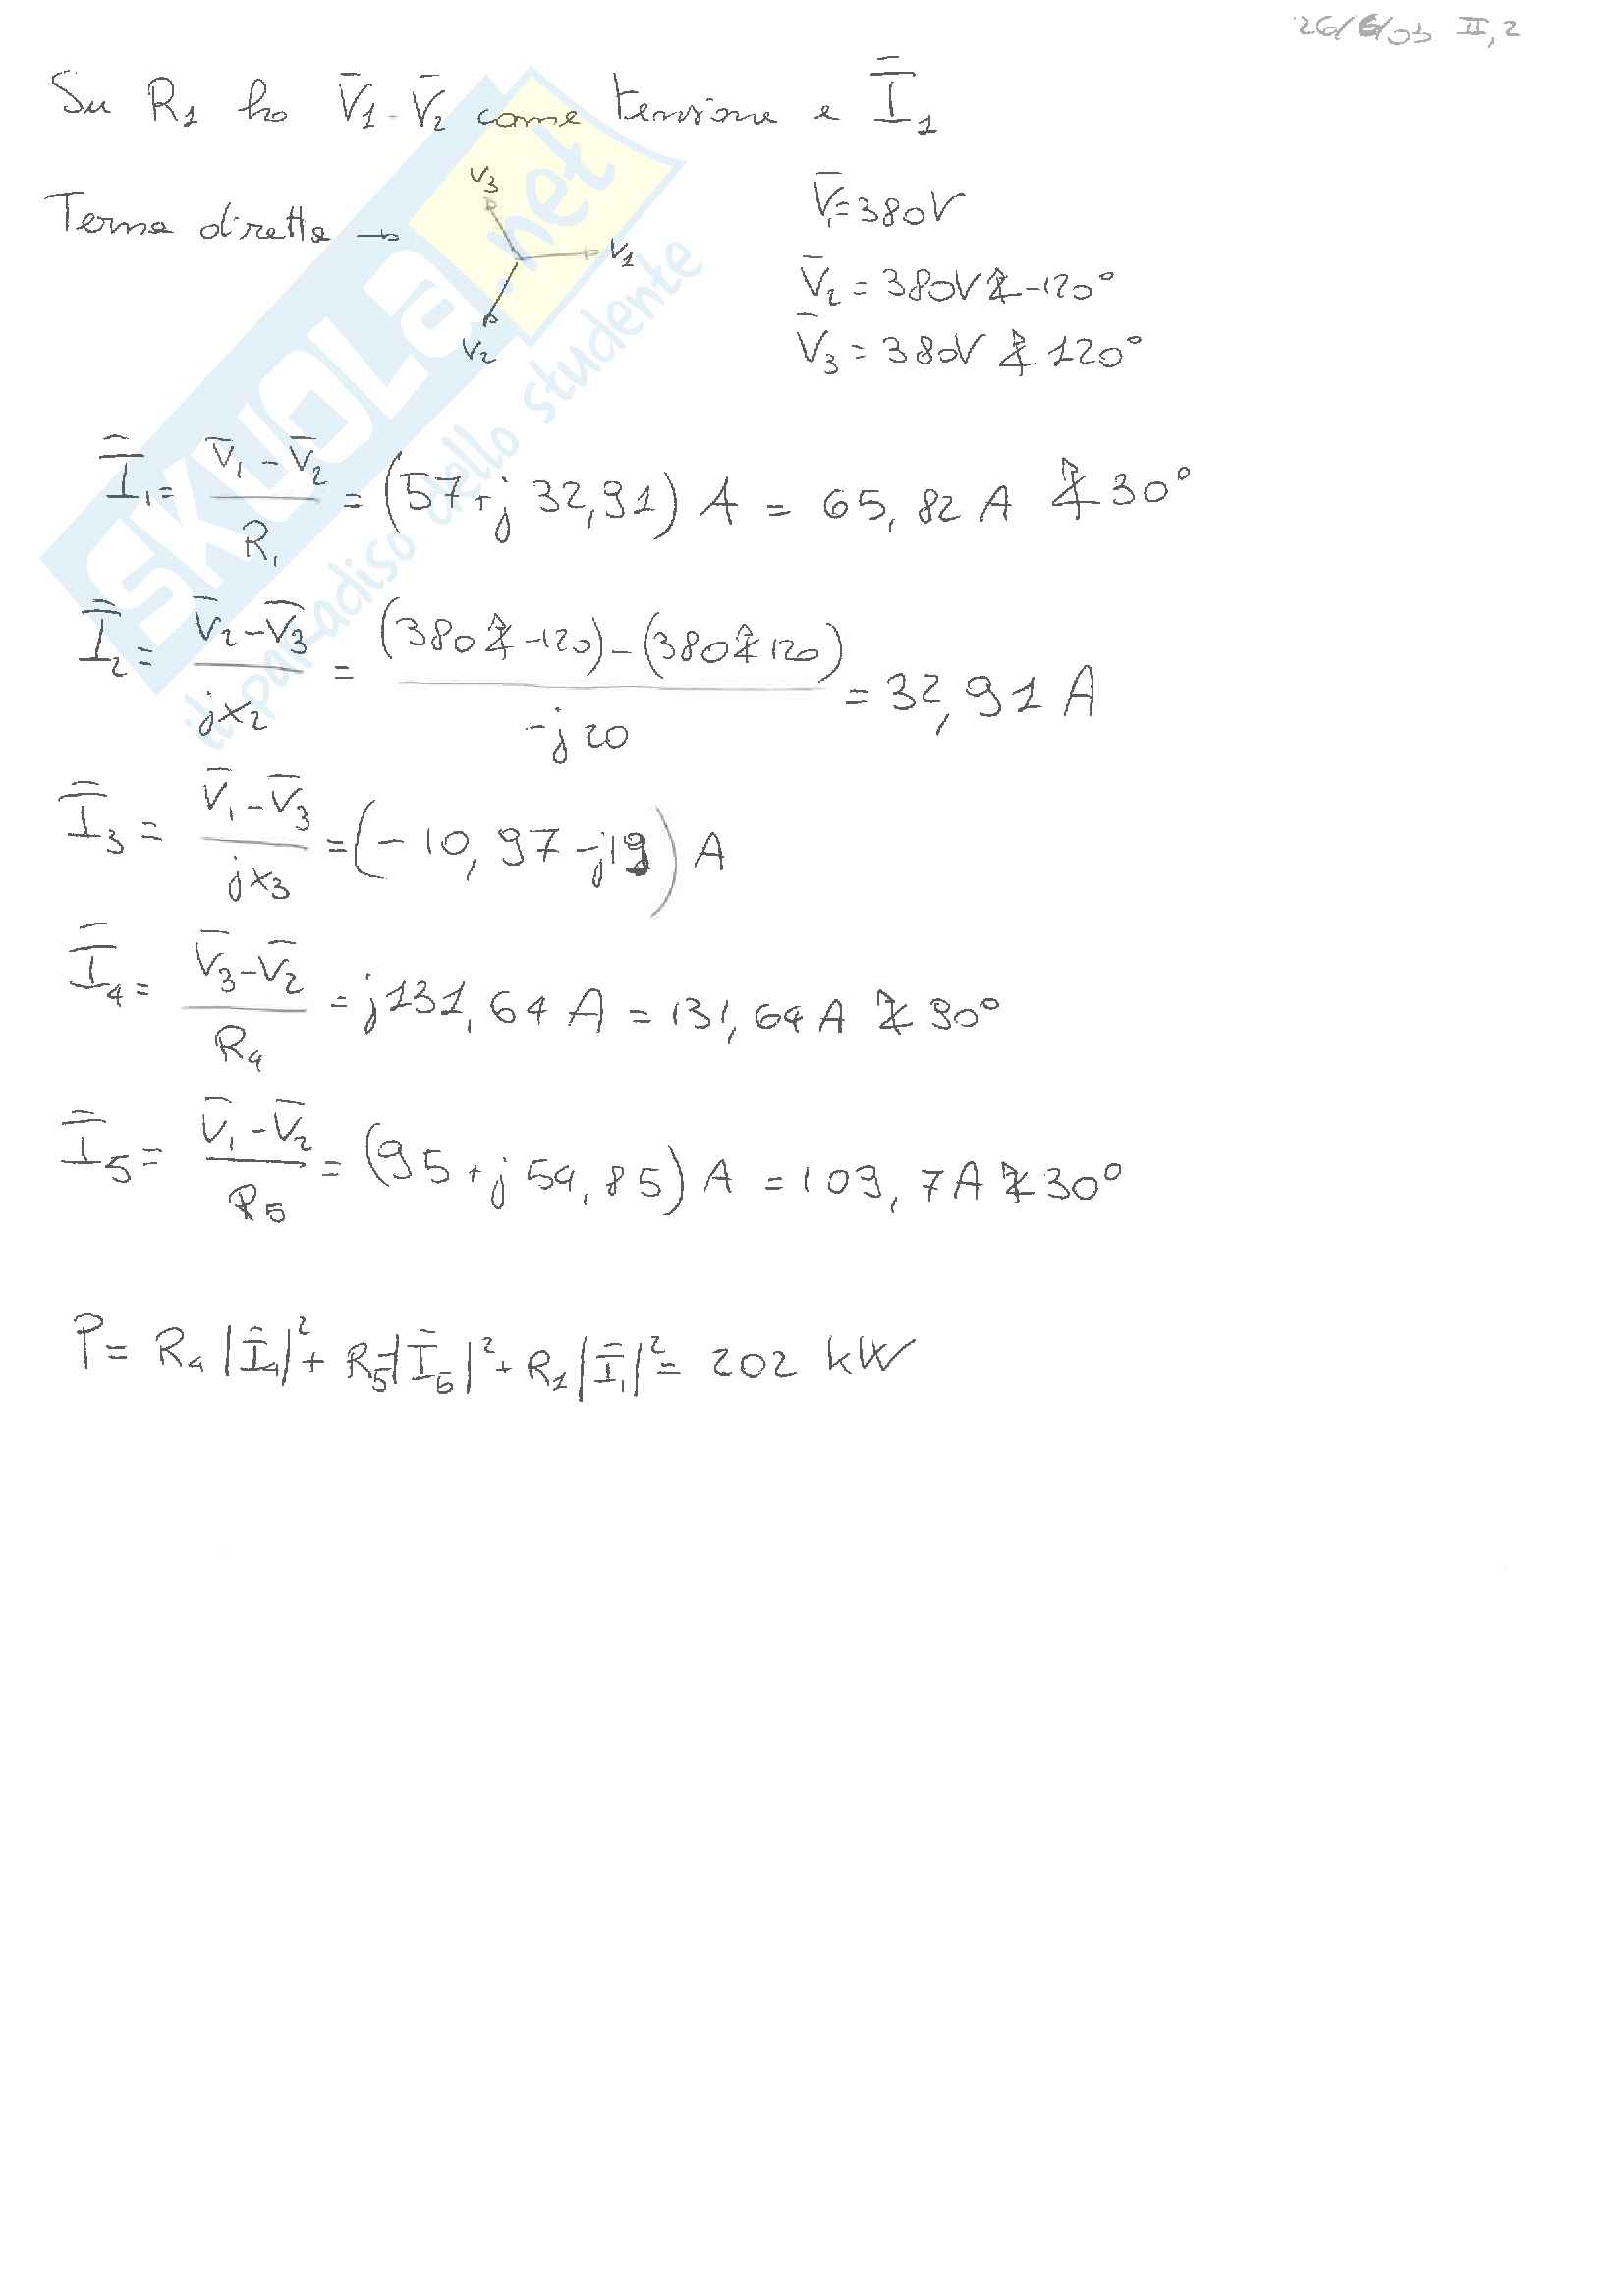 26/6/03 II, 2
Su R1 ho V̄1 - V̄2 come tensione e Ī̄1
Terna diretta → V3 V1 V2
V̄1 = 380V
V̄2 = 380V ∡ -120°
V̄3 = 380V ∡ 120°
Ī̄1 = (V̄1 - V̄2) / R1 = (57 + j 32,91) A = 65,82 A ∡ 30°
Ī̄2 = (V̄2 - V̄3) / jX2 = ((380 ∡ -120) - (380 ∡ 120)) / -j20 = 32,91 A
Ī̄3 = (V̄1 - V̄3) / jX3 = (-10,97 - j19) A
Ī̄4 = (V̄3 - V̄2) / R4 = j131,64 A = 131,64 A ∡ 90°
Ī̄5 = (V̄1 - V̄2) / R5 = (95 + j 54,85) A = 109,7 A ∡ 30°
P = R4 |Ī̄4|² + R5 |Ī̄5|² + R1 |Ī̄1|² = 202 kW
SKUOLA.net
il paradiso dello studente